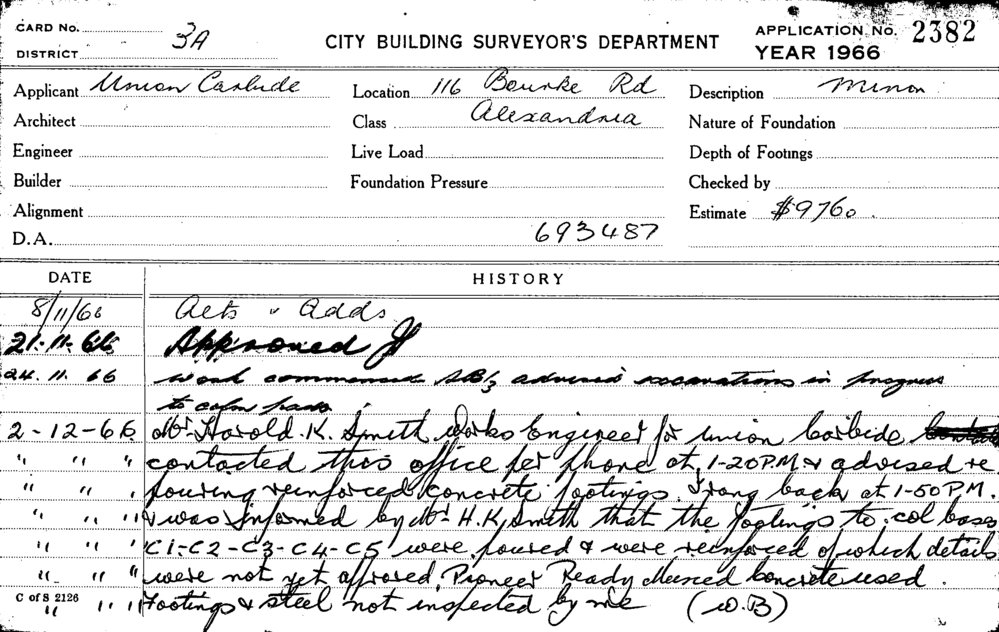 CARD No.
DISTRICT 3A
CITY BUILDING SURVEYOR'S DEPARTMENT
APPLICATION No. 2382
YEAR 1966
Applicant Union Carbide
Location 116 Bourke Rd
Description Minor
Architect
Class Alexandria
Nature of Foundation
Engineer
Live Load
Depth of Footings
Builder
Foundation Pressure
Checked by
Alignment
Estimate $9760.
D.A.
693487
DATE HISTORY
8/11/66 Alts & Adds
21.11.66 Approved
24.11.66 work commenced advised excavations in progress
to colm pads
2-12-66 Mr. Harold. K. Smith Works Engineer for Union Carbide
" " " contacted this office per phone at 1-20 P.M. & advised re
" " " pouring reinforced concrete footings. I rang back at 1-50 P.M.
" " " & was informed by Mr H.K. Smith that the footings to col bases
" " " C1-C2-C3-C4-C5 were poured & were reinforced of which details
" " " were not yet approved Pioneer Ready Mixed Concrete used.
C of S 2126
" " " Footings & steel not inspected by me (W.B)